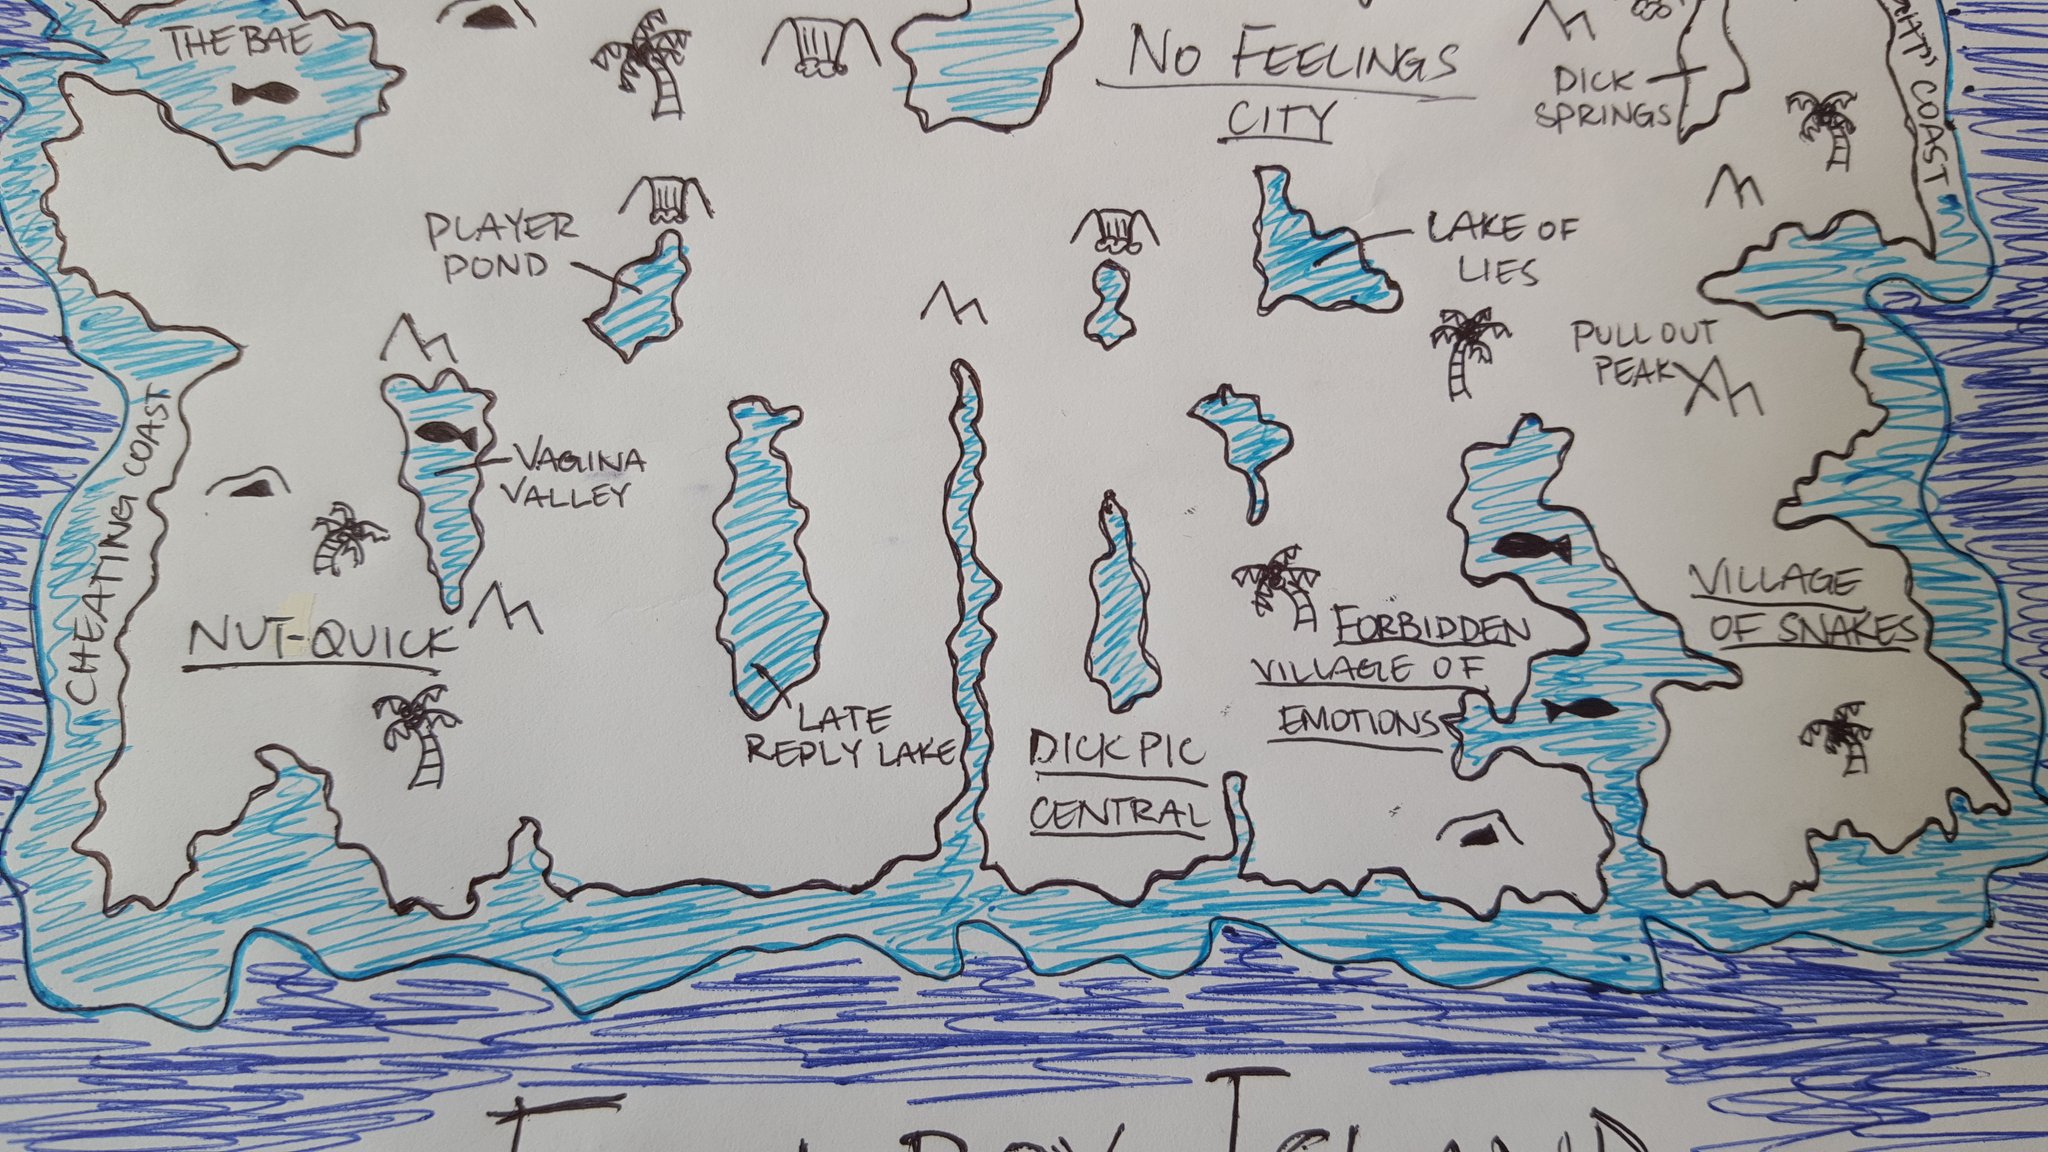 THE BAE
NO FEELINGS
CITY
DICK
SPRINGS
COAST
PLAYER
POND
LAKE OF
LIES
PULL OUT
PEAK
CHEATING COAST
VAGINA
VALLEY
NUT-QUICK
LATE
REPLY LAKE
DICK PIC
CENTRAL
FORBIDDEN
VILLAGE OF
EMOTIONS
VILLAGE
OF SNAKES
BOY ISLAND